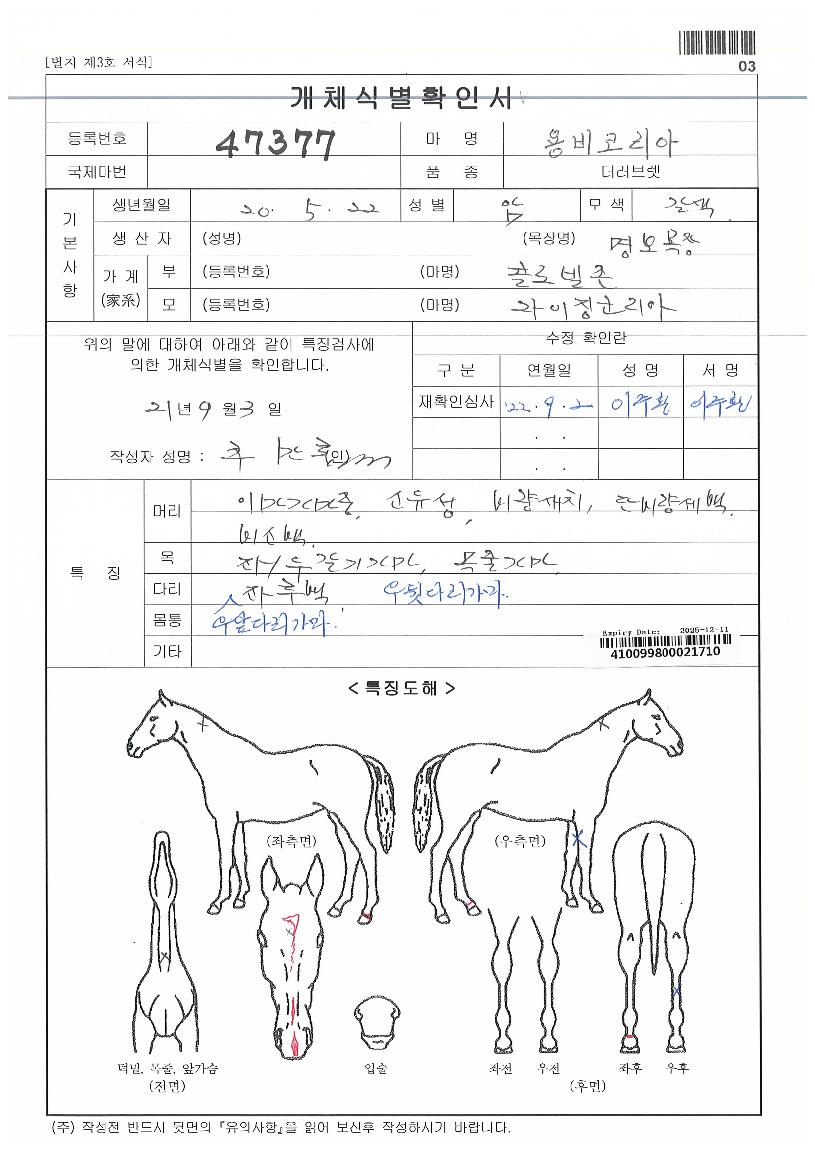 [별지 제3호 서식]
03
개체식별확인서
등록번호 47377 마 명 용비코리아
국제마번 품 종 더러브렛
기본사항
생년월일 20. 5. 22 성 별 암 모 색 갈색
생 산 자 (성명) (목장명) 명보목장
가 계 (家系) 부 (등록번호) (마명) 콜로넬존
모 (등록번호) (마명) 와이정코리아
위의 말에 대하여 아래와 같이 특징검사에
의한 개체식별을 확인합니다.
21년 9 월 3 일
작성자 성명 : (인)
수정 확인란
구 분 연월일 성 명 서 명
재확인심사 '22. 9. 2 이주환 이주환
. .
. .
특 징
머리 소유성, 비량세치,
목
다리 좌후백 우뒷다리가마.
몸통 우앞다리가마.
기타
Expiry Date: 2026-12-11
410099800021710
< 특징도해 >
(좌측면) (우측면)
턱밑, 목줄, 앞가슴
(전면)
입술
좌전 우전 좌후 우후
(후면)
(주) 작성전 반드시 뒷면의 『유의사항』을 읽어 보신후 작성하시기 바랍니다.